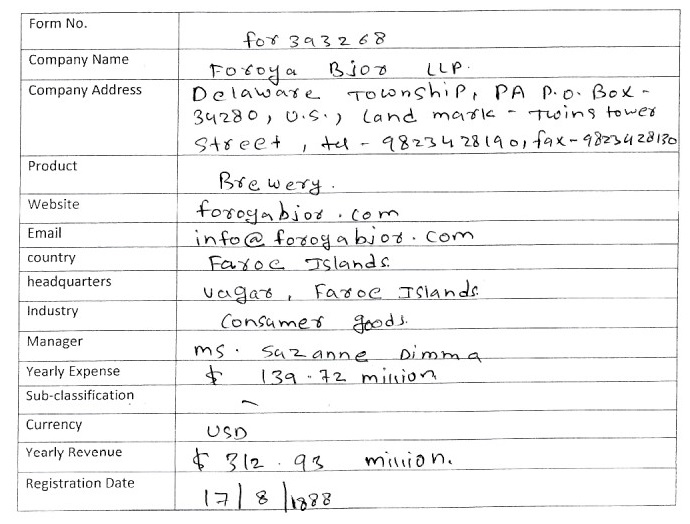 Form No. for 393268
Company Name Foroya Bjor LLP.
Company Address Delaware Township, PA P.O. Box -
34280, U.S., Land mark - Twins tower
Street, tel - 9823428190, fax - 9823428130
Product Brewery.
Website foroyabjor.com
Email info@foroyabjor.com
country Faroe Islands.
headquarters vagar, Faroe Islands.
Industry Consumer goods.
Manager ms. Suzanne Dimma
Yearly Expense $ 139.72 million
Sub-classification -
Currency USD
Yearly Revenue $ 312.93 million.
Registration Date 17/8/1888